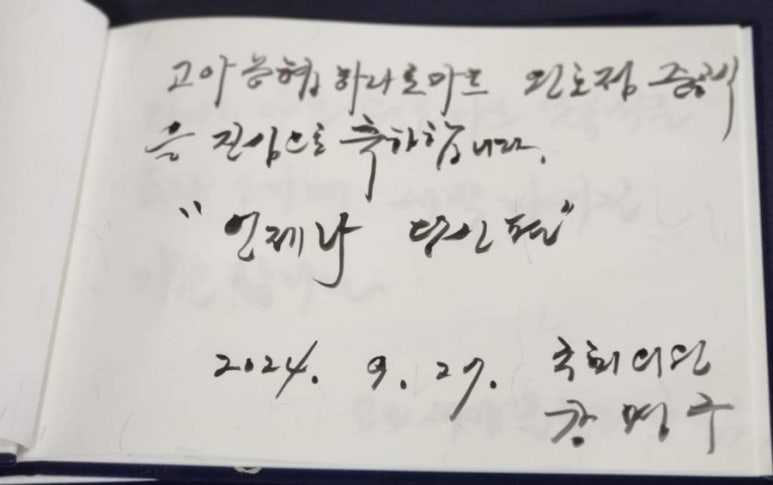 고아농협 하나로마트 원호점 준공식
을 진심으로 축하합니다.
"언제나 당신 편"
2024. 9. 27. 국회의원
강명구